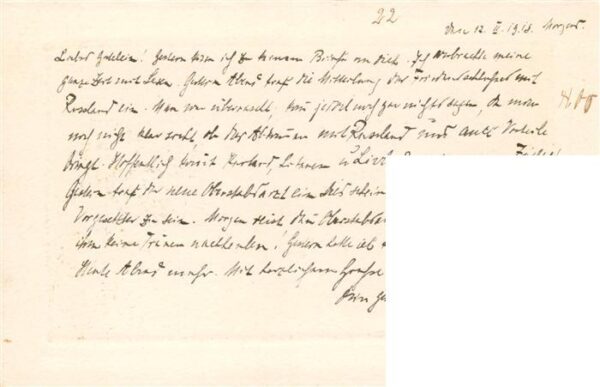 22
den 12. II. 1918. Morgens.
Liebes Gretelein! Gestern kam ich zu keinem Brief an dich. Ich verbrachte meine
ganze Zeit mit Lesen. Gestern Abend traf die Mitteilung des Friedensschlusses mit
Russland ein. Man war überrascht, kann jetzt noch gar nichts sagen, da man
noch nicht klar sieht, ob das Abkommen mit Russland uns auch Vorteile
bringt. Hoffentlich kommt Kurland, Litauen u. Livl
Gestern traf der neue Oberstabsarzt ein. Dies schein
Vorgesetzter zu sein. Morgen reist dann Oberstabsa
ihm keine Tränen nachweinen! Gestern hatte ich
Heute Abend mehr. Mit herzlichem Gruße
Dein